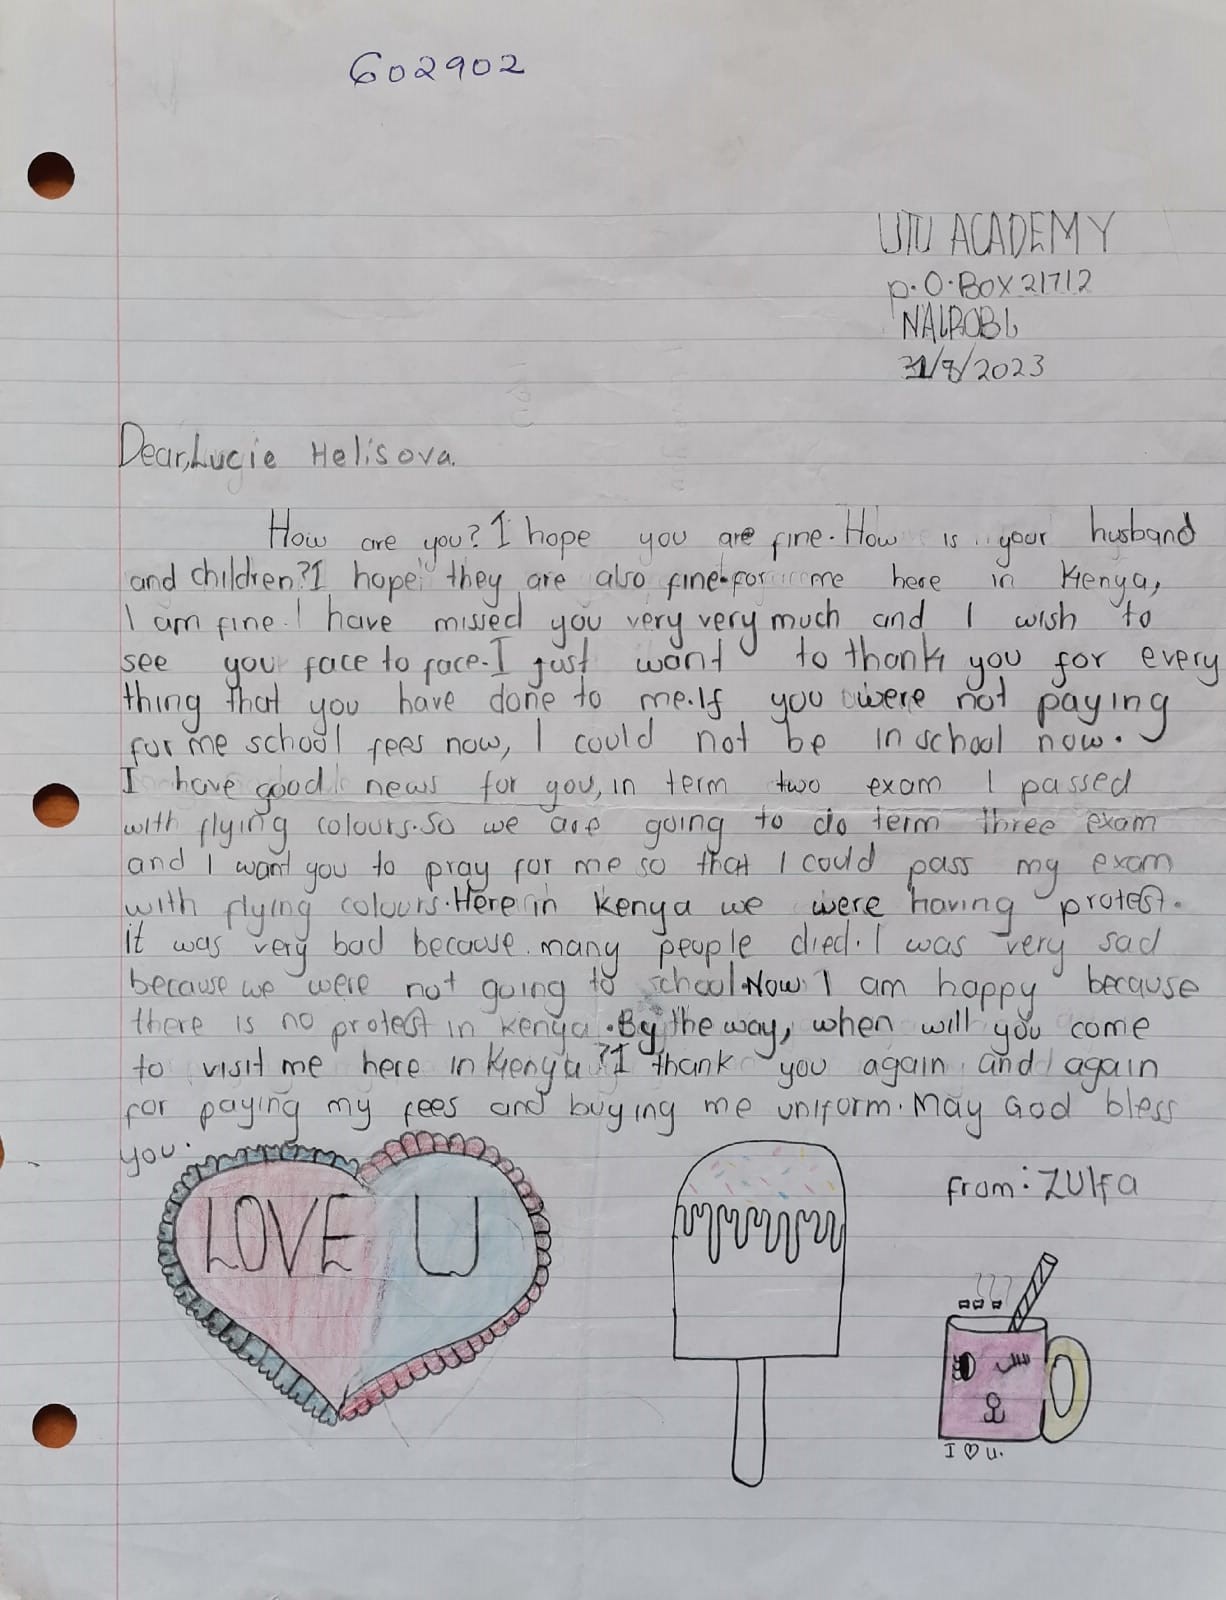 602902
UTU ACADEMY
p.O.BOX 21712
NAIROBI
31/8/2023
Dear,Lucie Helisova.
How are you? I hope you are fine. How is your husband
and children? I hope they are also fine. for me here in Kenya,
I am fine. I have missed you very very much and I wish to
see you face to face. I just want to thank you for every
thing that you have done to me. If you were not paying
for me school fees now, I could not be in school now.
I have good news for you, in term two exam I passed
with flying colours. So we are going to do term three exam
and I want you to pray for me so that I could pass my exam
with flying colours. Here in Kenya we were having protest.
it was very bad because many people died. I was very sad
because we were not going to school. Now I am happy because
there is no protest in Kenya. By the way, when will you come
to visit me here in Kenya? I thank you again and again
for paying my fees and buying me uniform. May God bless
you.
from: ZULFA
LOVE U
I ♡ U.